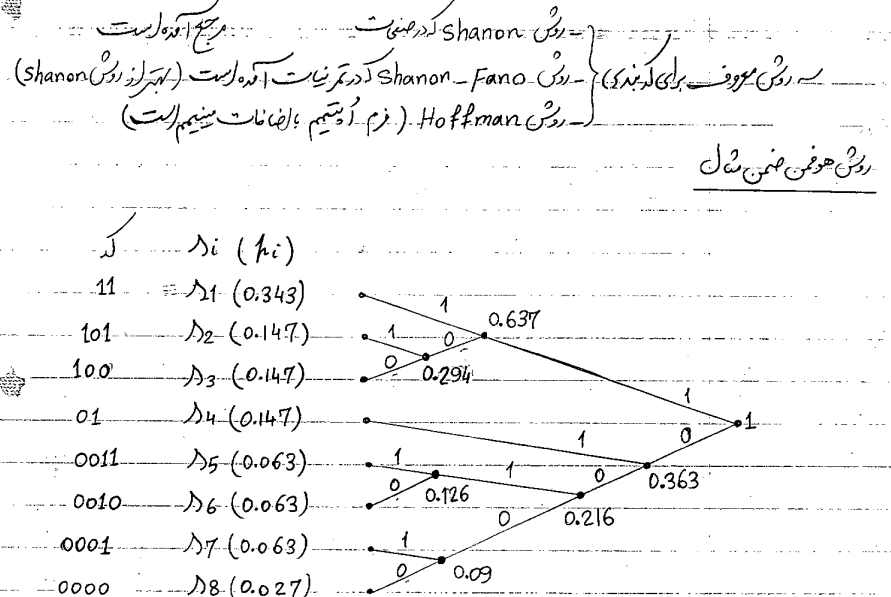 - روش Shanon که در صفحات مرجع آمده است
سه روش معروف برای کدبندی - روش Shanon - Fano که در تمرینات آمده است (بهتر از روش shanon)
- روش Hoffman (فرم اُپتیمم با اضافات مینیمم است)
روش هوفمن ضمن مثال
کد si (pi)
11 s1 (0.343)
101 s2 (0.147)
100 s3 (0.147)
01 s4 (0.147)
0011 s5 (0.063)
0010 s6 (0.063)
0001 s7 (0.063)
0000 s8 (0.027)
1 0.637
1 0
0 0.294
1
1 0 1
1 1 0 0.363
0 0.126 0 0.216
1
0 0.09